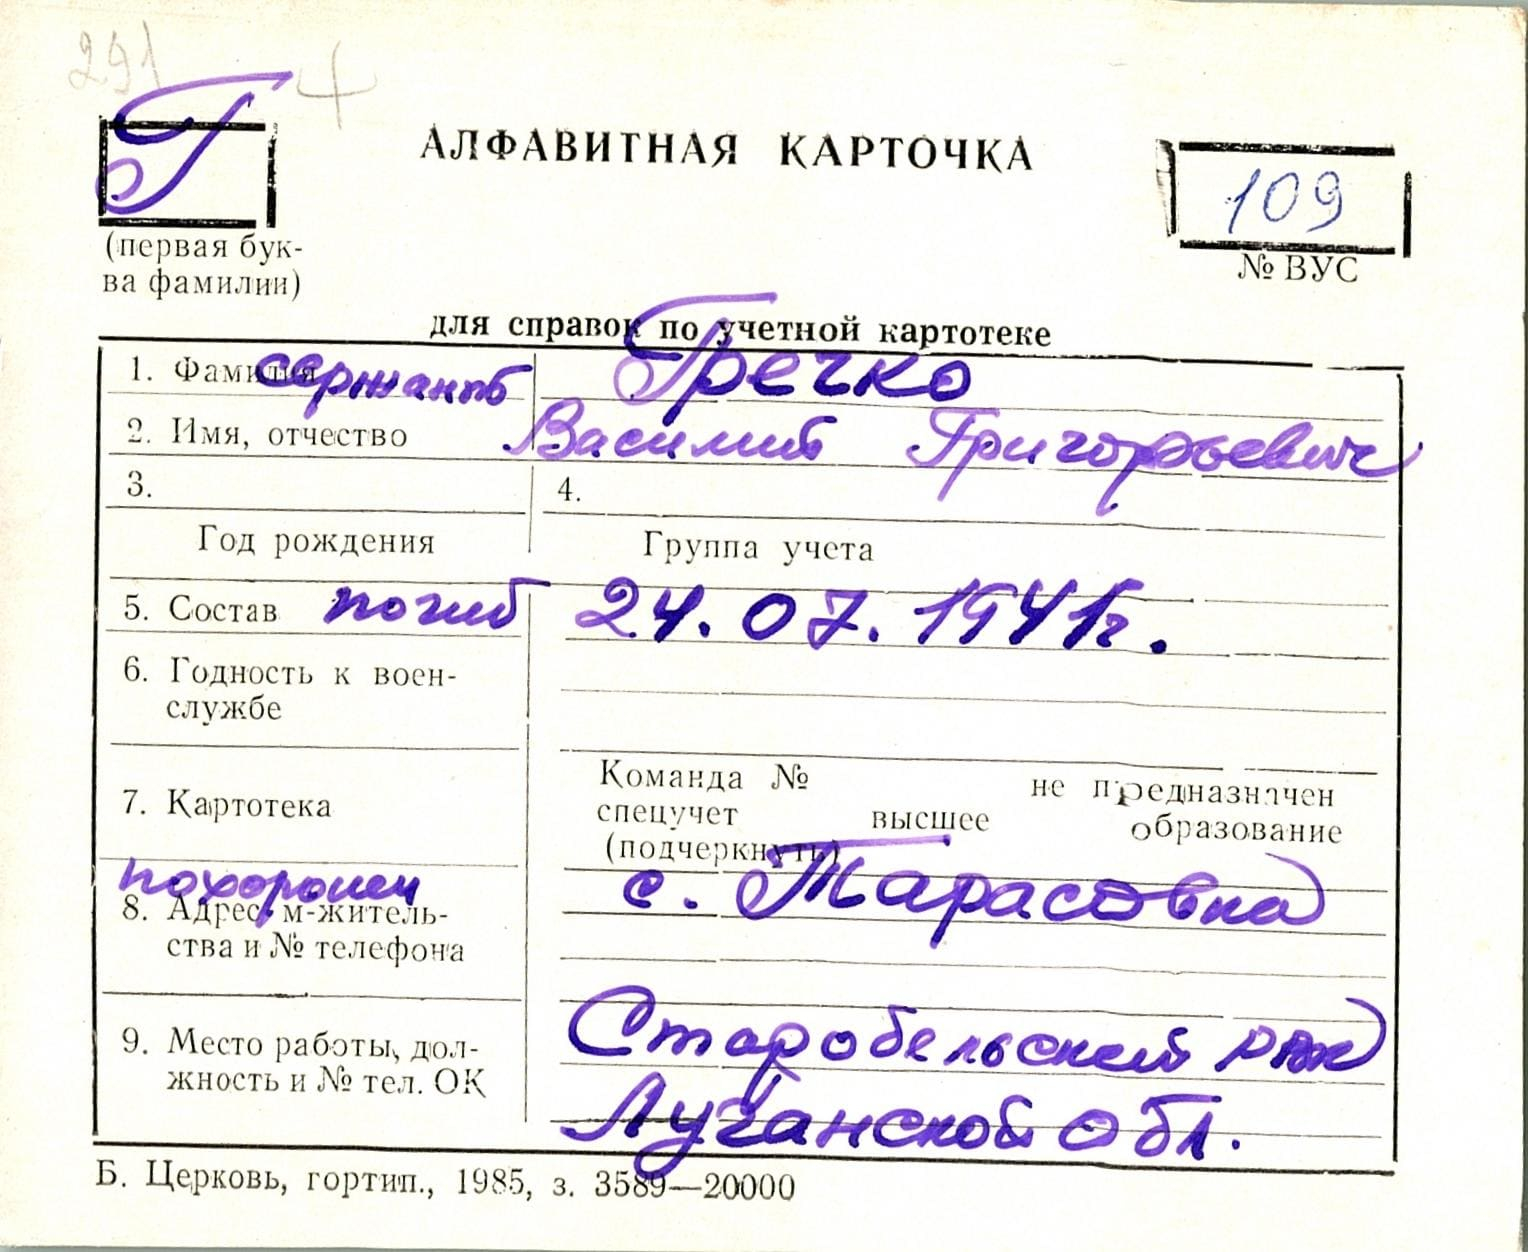 291 4
Г
АЛФАВИТНАЯ КАРТОЧКА
109
(первая бук-
ва фамилии)
№ ВУС
для справок по учетной картотеке
1. Фамилия сержант Гречко
2. Имя, отчество Василий Григорьевич
3. 4.
Год рождения Группа учета
5. Состав погиб 24.07.1941г.
6. Годность к воен-
службе
7. Картотека
Команда № не предназначен
спецучет высшее образование
(подчеркнуть)
похоронен с. Тарасовка
8. Адрес м-житель-
ства и № телефона
Старобельский р-он
9. Место работы, дол-
жность и № тел. ОК
Луганской обл.
Б. Церковь, гортип., 1985, з. 3589—20000